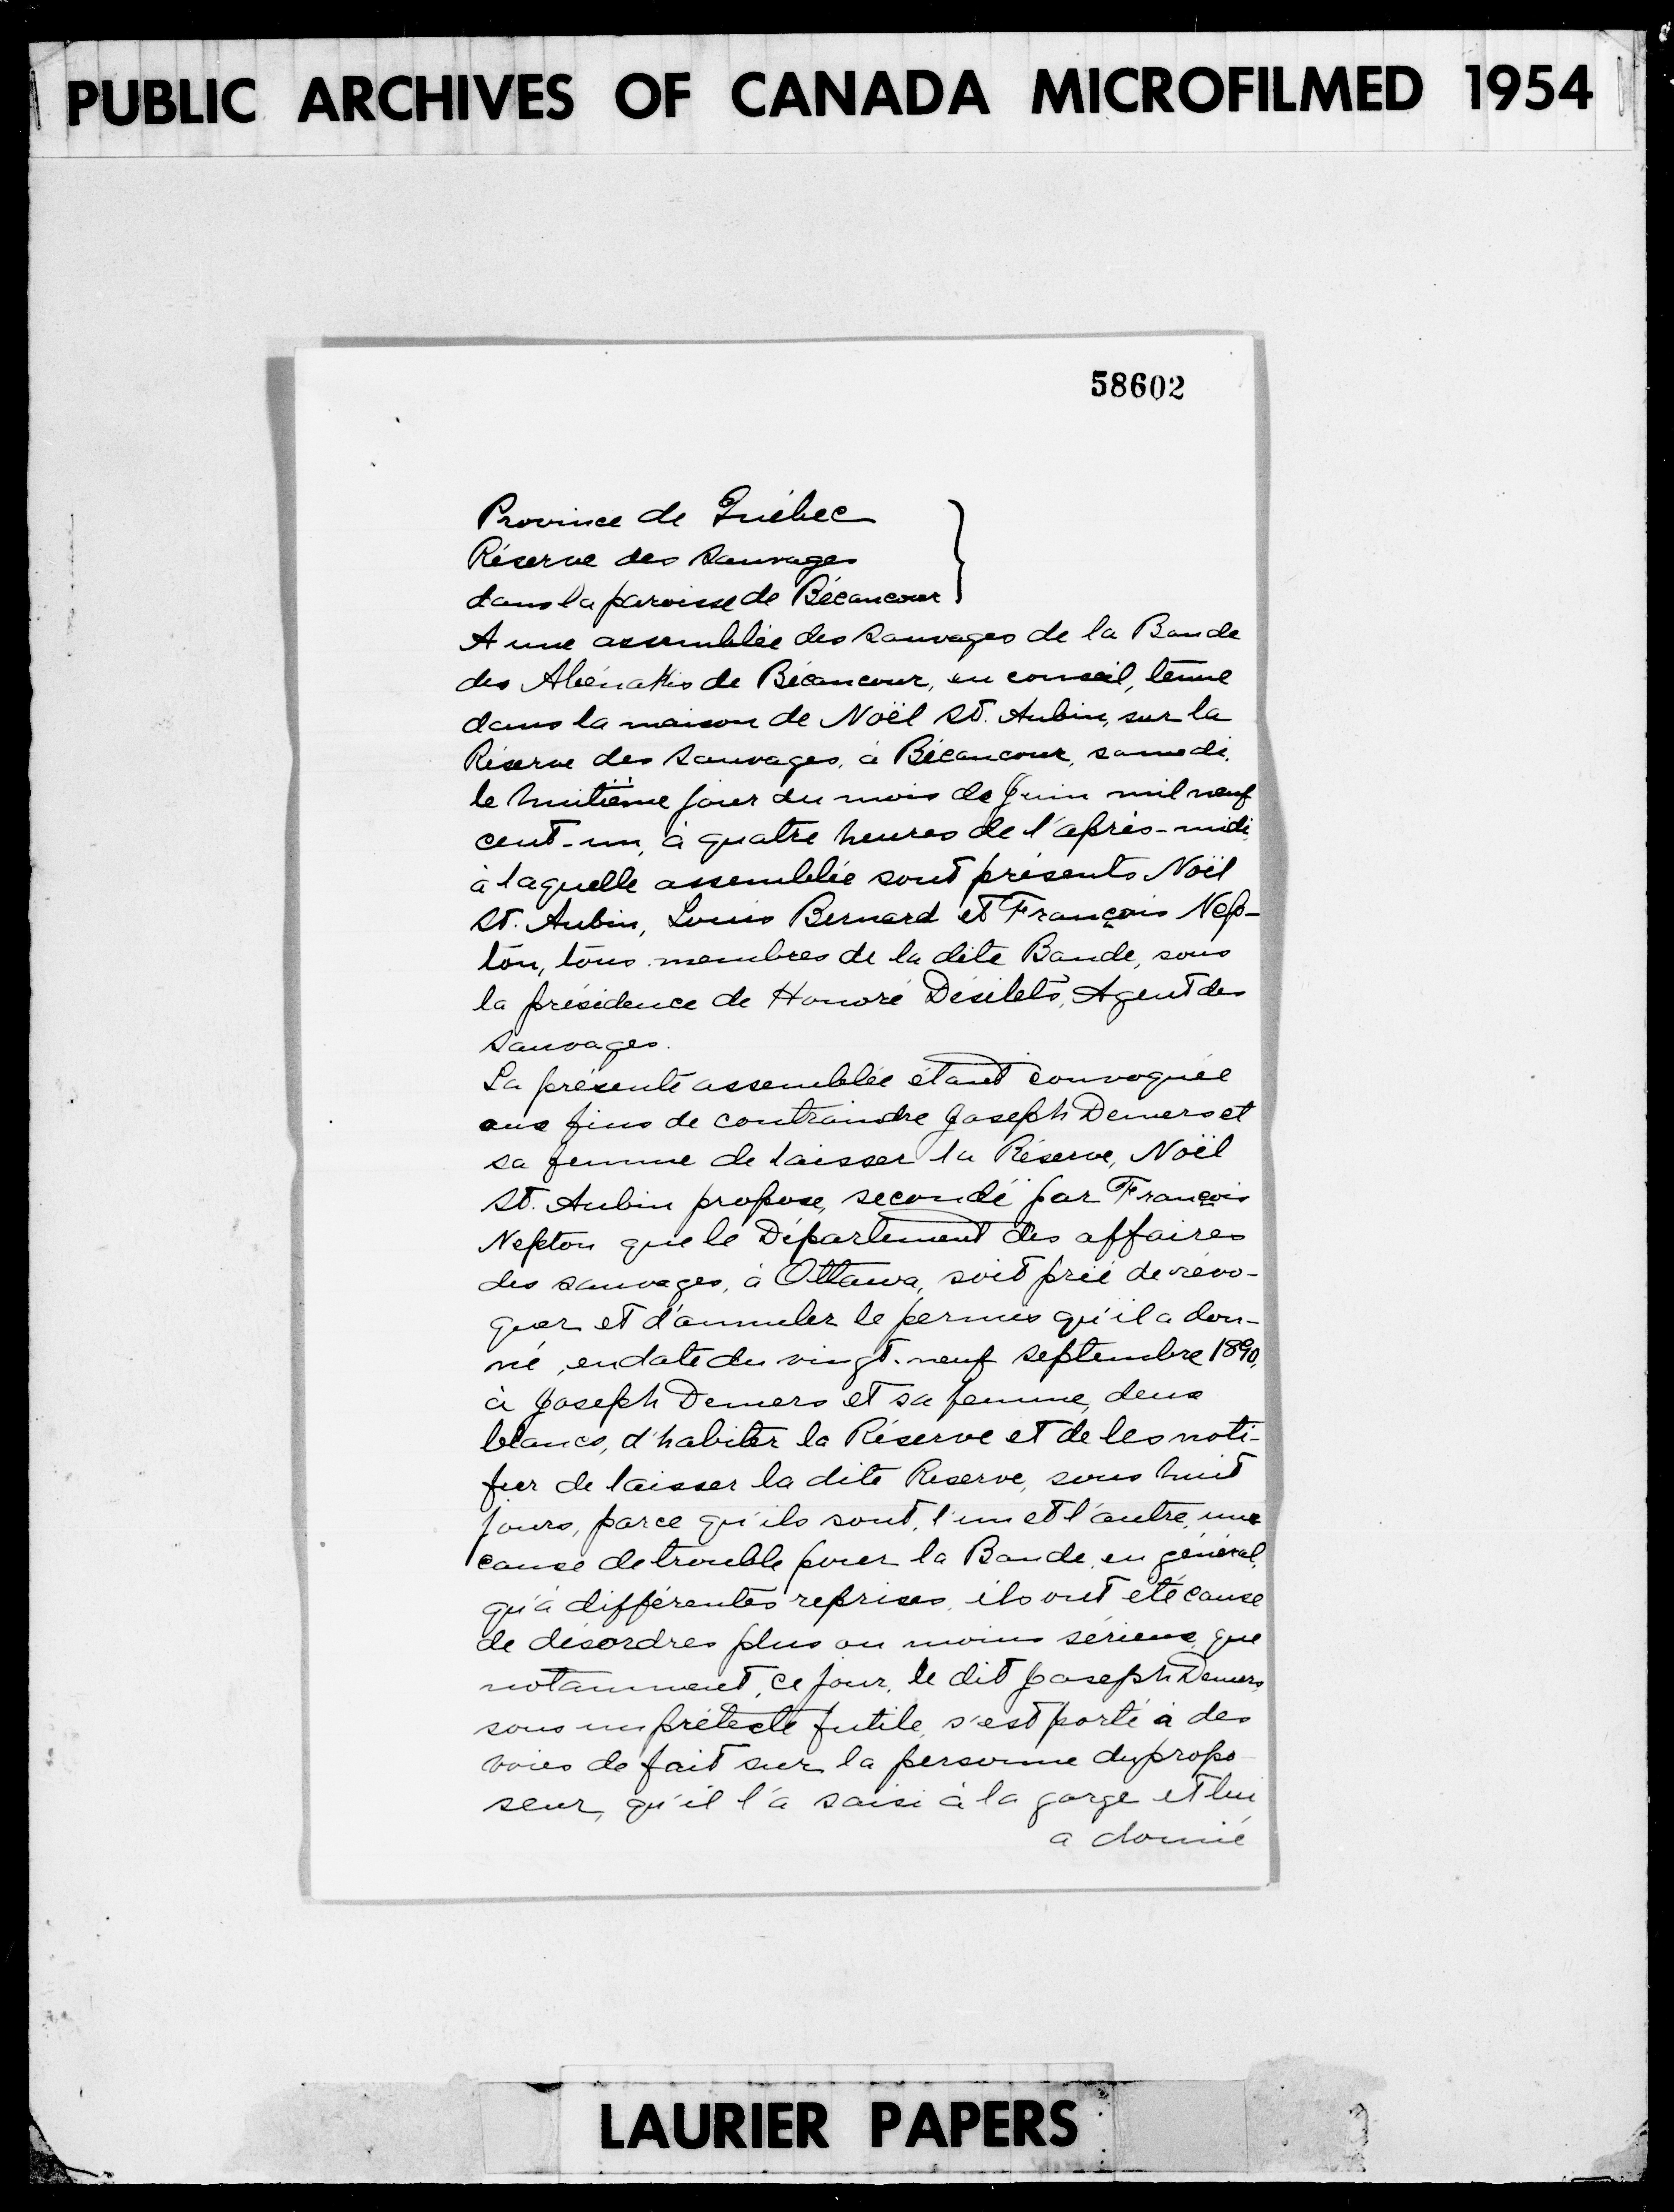 PUBLIC ARCHIVES OF CANADA MICROFILMED 1954
58602
Province de Québec
Réserve des Sauvages
dans la paroisse de Bécancour
A une assemblée des Sauvages de la Bande
des Abénakis de Bécancour, en conseil, tenue
dans la maison de Noël St. Aubin, sur la
Réserve des Sauvages, à Bécancour, samedi,
le huitième jour du mois de Juin mil neuf
cent-un, à quatre heures de l'après-midi,
à laquelle assemblée sont présents Noël
St. Aubin, Louis Bernard et François Nep-
ton, tous membres de la dite Bande, sous
la présidence de Honoré Désilets, Agent des
Sauvages.
La présente assemblée étant convoquée
aux fins de contraindre Joseph Demers et
sa femme de laisser la Réserve, Noël
St. Aubin propose, secondé par François
Nepton que le Département des affaires
des sauvages, à Ottawa, soit prié de révo-
quer et d'annuler le permis qu'il a don-
né, en date du vingt-neuf septembre 1890,
à Joseph Demers et sa femme, deux
blancs, d'habiter la Réserve et de les noti-
fier de laisser la dite Réserve, sous huit
jours, parce qu'ils sont, l'un et l'autre, une
cause de trouble pour la Bande, en général,
qu'à différentes reprises, ils ont été cause
de désordres plus ou moins sérieux, que
notamment, ce jour, le dit Joseph Demers,
sous un prétexte futile, s'est porté à des
voies de fait sur la personne du propo-
seur, qu'il l'a saisi à la gorge et lui
a donné
LAURIER PAPERS